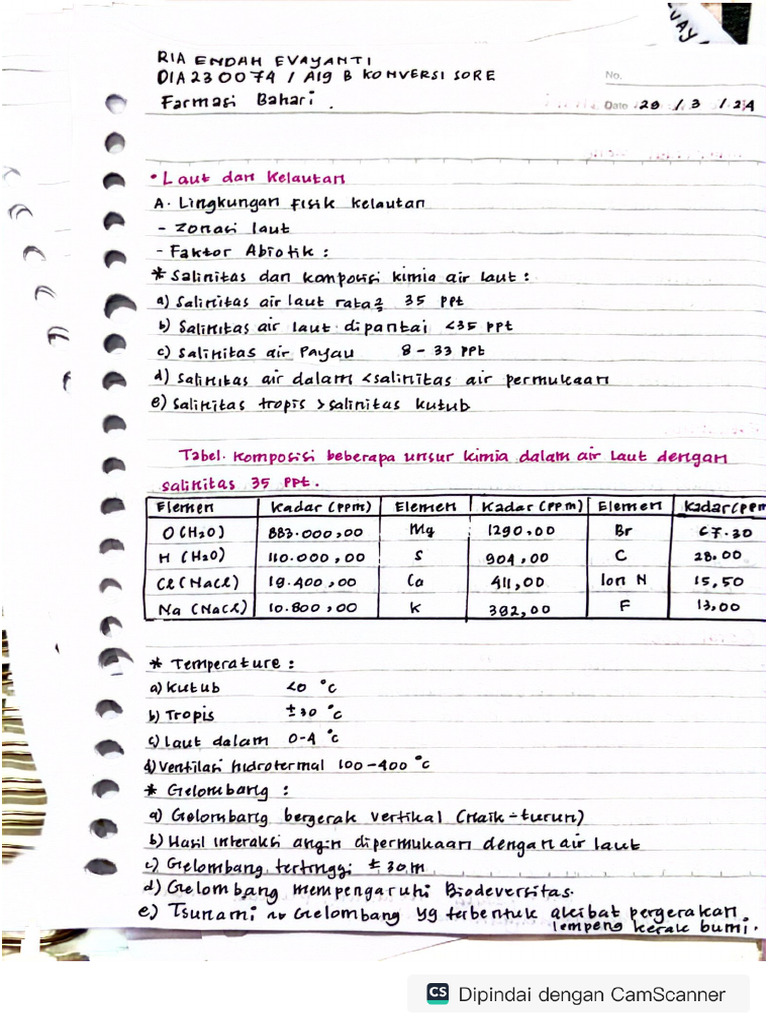 UAY
RIA ENDAH EVAYANTI
O1A230074 / A19 B KONVERSI SORE
No.
Farmasi Bahari.
Date 28 / 3 / 24
• Laut dan Kelautan
A. Lingkungan fisik kelautan
- Zonasi laut
- Faktor Abiotik :
* Salinitas dan komposisi kimia air laut :
a) Salinitas air laut rata2 35 ppt
b) Salinitas air laut dipantai <35 ppt
c) Salinitas air Payau 8 - 33 ppt
d) Salinitas air dalam <salinitas air permukaan
e) Salinitas tropis > salinitas kutub
Tabel. Komposisi beberapa unsur kimia dalam air laut dengan
salinitas 35 ppt.
Elemen Kadar (ppm) Elemen Kadar (ppm) Elemen Kadar (ppm
O (H2O) 883.000,00 Mg 1290,00 Br 67.30
H (H2O) 110.000,00 S 904,00 C 28.00
Cl (NaCl) 19.400,00 Ca 411,00 Ion N 15,50
Na (NaCl) 10.800,00 K 392,00 F 13,00
* Temperature :
a) Kutub <0 °C
b) Tropis ±30 °C
c) Laut dalam 0-4 °C
d) Ventilasi hidrotermal 100-400 °C
* Gelombang :
a) Gelombang bergerak vertikal (naik-turun)
b) Hasil interaksi angin dipermukaan dengan air laut
c) Gelombang tertinggi ± 30 m
d) Gelombang mempengaruhi Biodeversitas.
e) Tsunami ~ Gelombang yg terbentuk akibat pergerakan
lempeng kerak bumi.
CS Dipindai dengan CamScanner